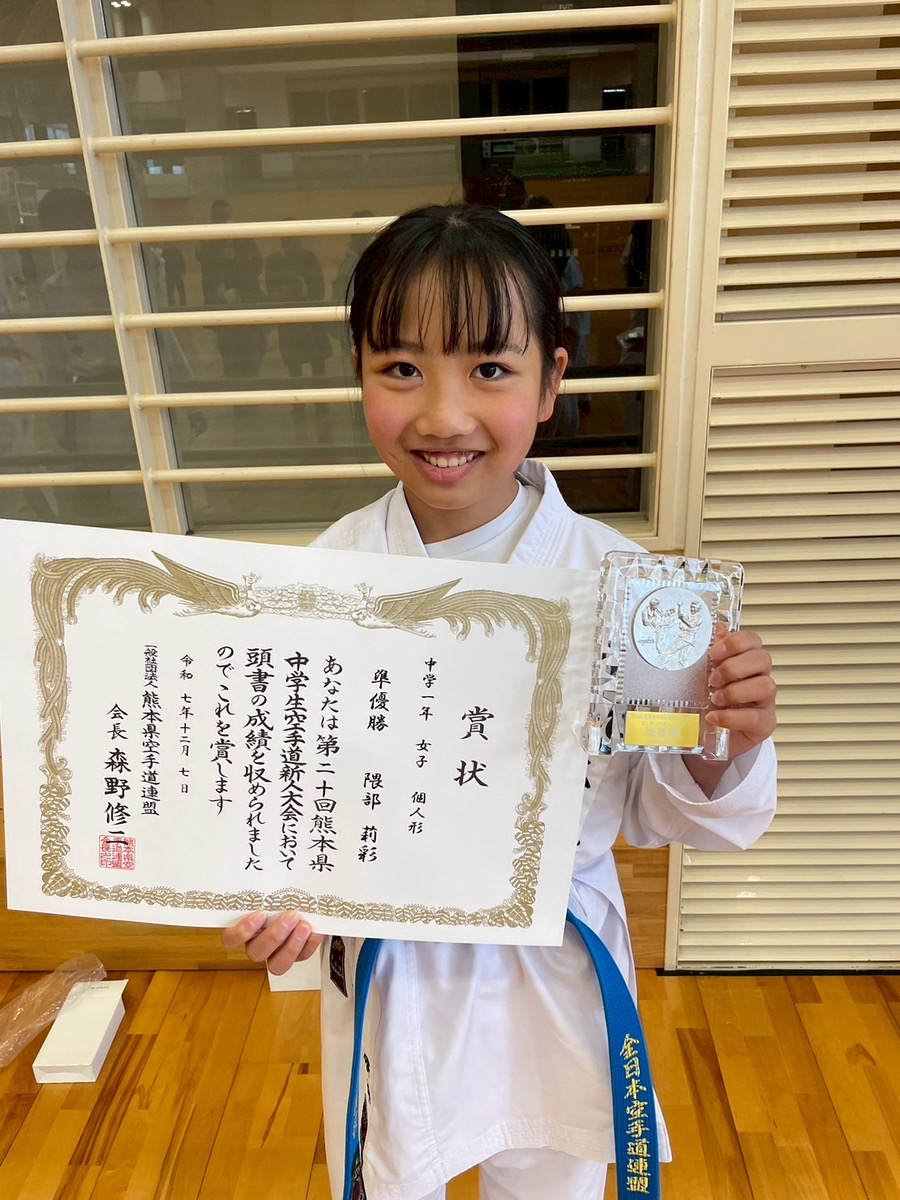 賞状
中学一年 女子 個人形
準優勝 隈部 莉彩
あなたは第二十回熊本県
中学生空手道新人大会において
頭書の成績を収められました
のでこれを賞します
令和 七年十二月 七日
一般社団法人 熊本県空手道連盟
会長 森野修二
全日本空手道連盟